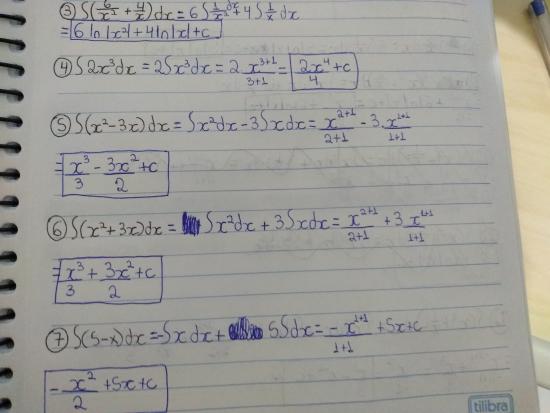 ③ ∫(6/x² + 4/x)dx = 6∫1/x² dx + 4∫1/x dx
= 6 ln|x²| + 4 ln|x| + c
④ ∫2x³dx = 2∫x³dx = 2 x³⁺¹/3+1 = 2x⁴/4 + c
⑤ ∫(x²-3x)dx = ∫x²dx - 3∫xdx = x²⁺¹/2+1 - 3.x¹⁺¹/1+1
= x³/3 - 3x²/2 + c
⑥ ∫(x²+3x)dx = ∫x²dx + 3∫xdx = x²⁺¹/2+1 + 3 x¹⁺¹/1+1
= x³/3 + 3x²/2 + c
⑦ ∫(5-x)dx = -∫xdx + 5∫dx = -x¹⁺¹/1+1 + 5x + c
-x²/2 + 5x + c
tilibra